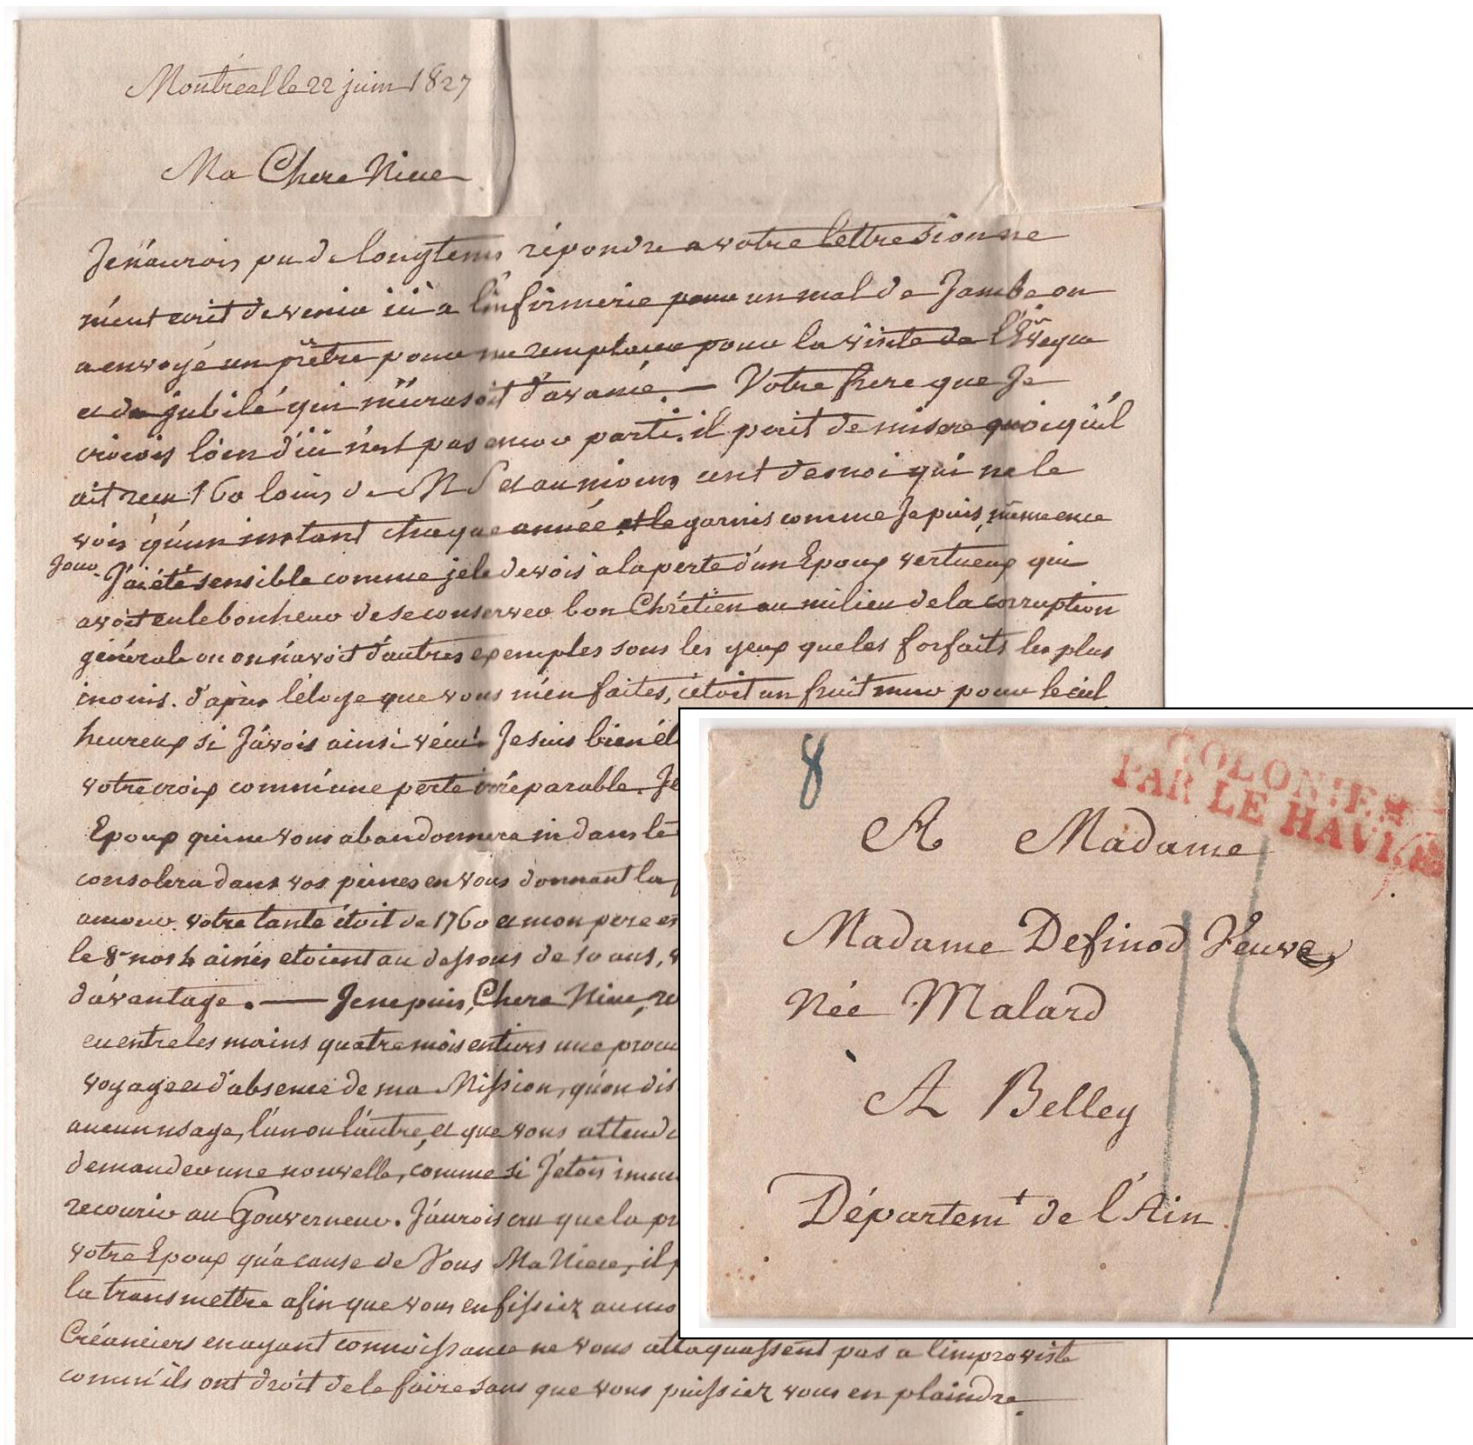 Montréal le 22 juin 1827
Ma Chere Niece
Je n'aurois pu de longtems répondre a votre lettre si on ne
m'eut ecrit de venir ici a l'infirmerie pour un mal de Jambe on
a envoyé un prêtre pour me remplacer pour la visite de l'Evêque
et du jubilé qui m'écrasoit d'avance. — Votre frere que Je
criois loin d'ici n'est pas encor parti. il perit de misere quoi qu'il
ait recu 160 louis de M et au moins cent de moi qui ne le
vois qu'un instant chaque année et le garnis comme Je puis, même en ce
Jour. J'ai été sensible comme je le devois a la perte d'un Epoux vertueux qui
avoit eu le bonheur de se conserver bon Chrétien au milieu de la corruption
générale ou on n'avoit d'autres exemples sous les yeux que les forfaits les plus
inouis. d'après l'éloge que vous m'en faites, c'étoit un fruit mur pour le ciel
heureux si J'avois ainsi vécu. Je suis bien él
votre croix comm'une perte irréparable. Je
Epoux qui ne vous abandonnera ni dans le
consolera dans vos peines en vous donnant la
amour. votre tante étoit de 1760 et mon pere es
le 8 nos 4 ainés etoient au dessous de 10 ans,
d'avantage. — Je ne puis, Chere Niece, re
eu entre les mains quatre mois entiers une procu
voyage et d'absence de ma Mission, qu'on dis
aucun usage, l'un ou l'autre, et que vous attend
demander une nouvelle, comme si J'etois imm
recourir au Gouverneur. J'aurois cru que la pr
votre Epoux qu'a cause de Vous Ma Niece, il
la transmettre afin que vous en fissiez au mo
Créanciers en ayant connoissance ne vous attaquassent pas a l'improviste
comm'ils ont droit de le faire sans que vous puissiez vous en plaindre.
8
COLONIES
PAR LE HAVRE
A Madame
Madame Definod Veuve,
Née Malard
A Belley
Départemt de l'Ain